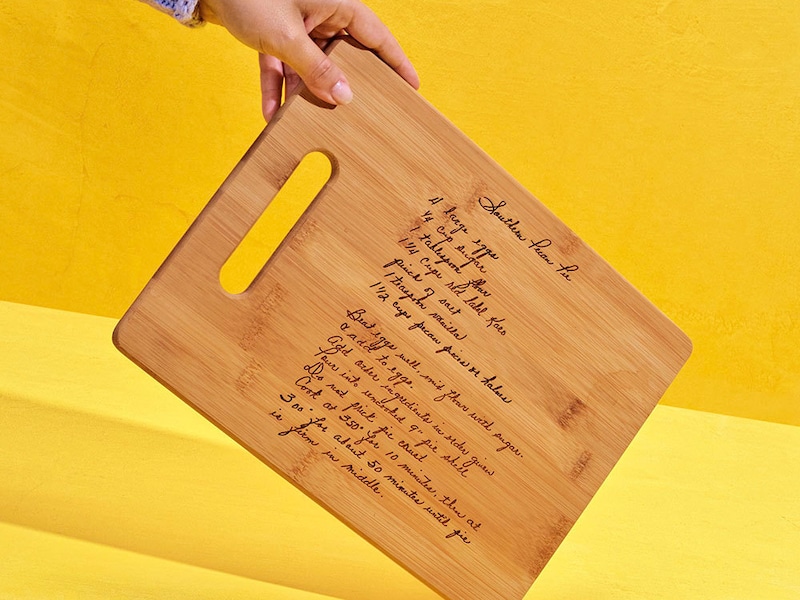 Southern Pecan Pie
4 large eggs
1/4 cup sugar
1 tablespoon flour
1 1/4 cups red label Karo
pinch of salt
1 teaspoon vanilla
1 1/2 cups pecan pieces or halves
Beat eggs well, mix flour with sugar.
& add to eggs.
Add order ingredients in order given
Pour into uncooked 9" pie shell
Do not prick pie crust
Cook at 350° for 10 minutes, then at
300° for about 50 minutes until pie
is firm in middle.